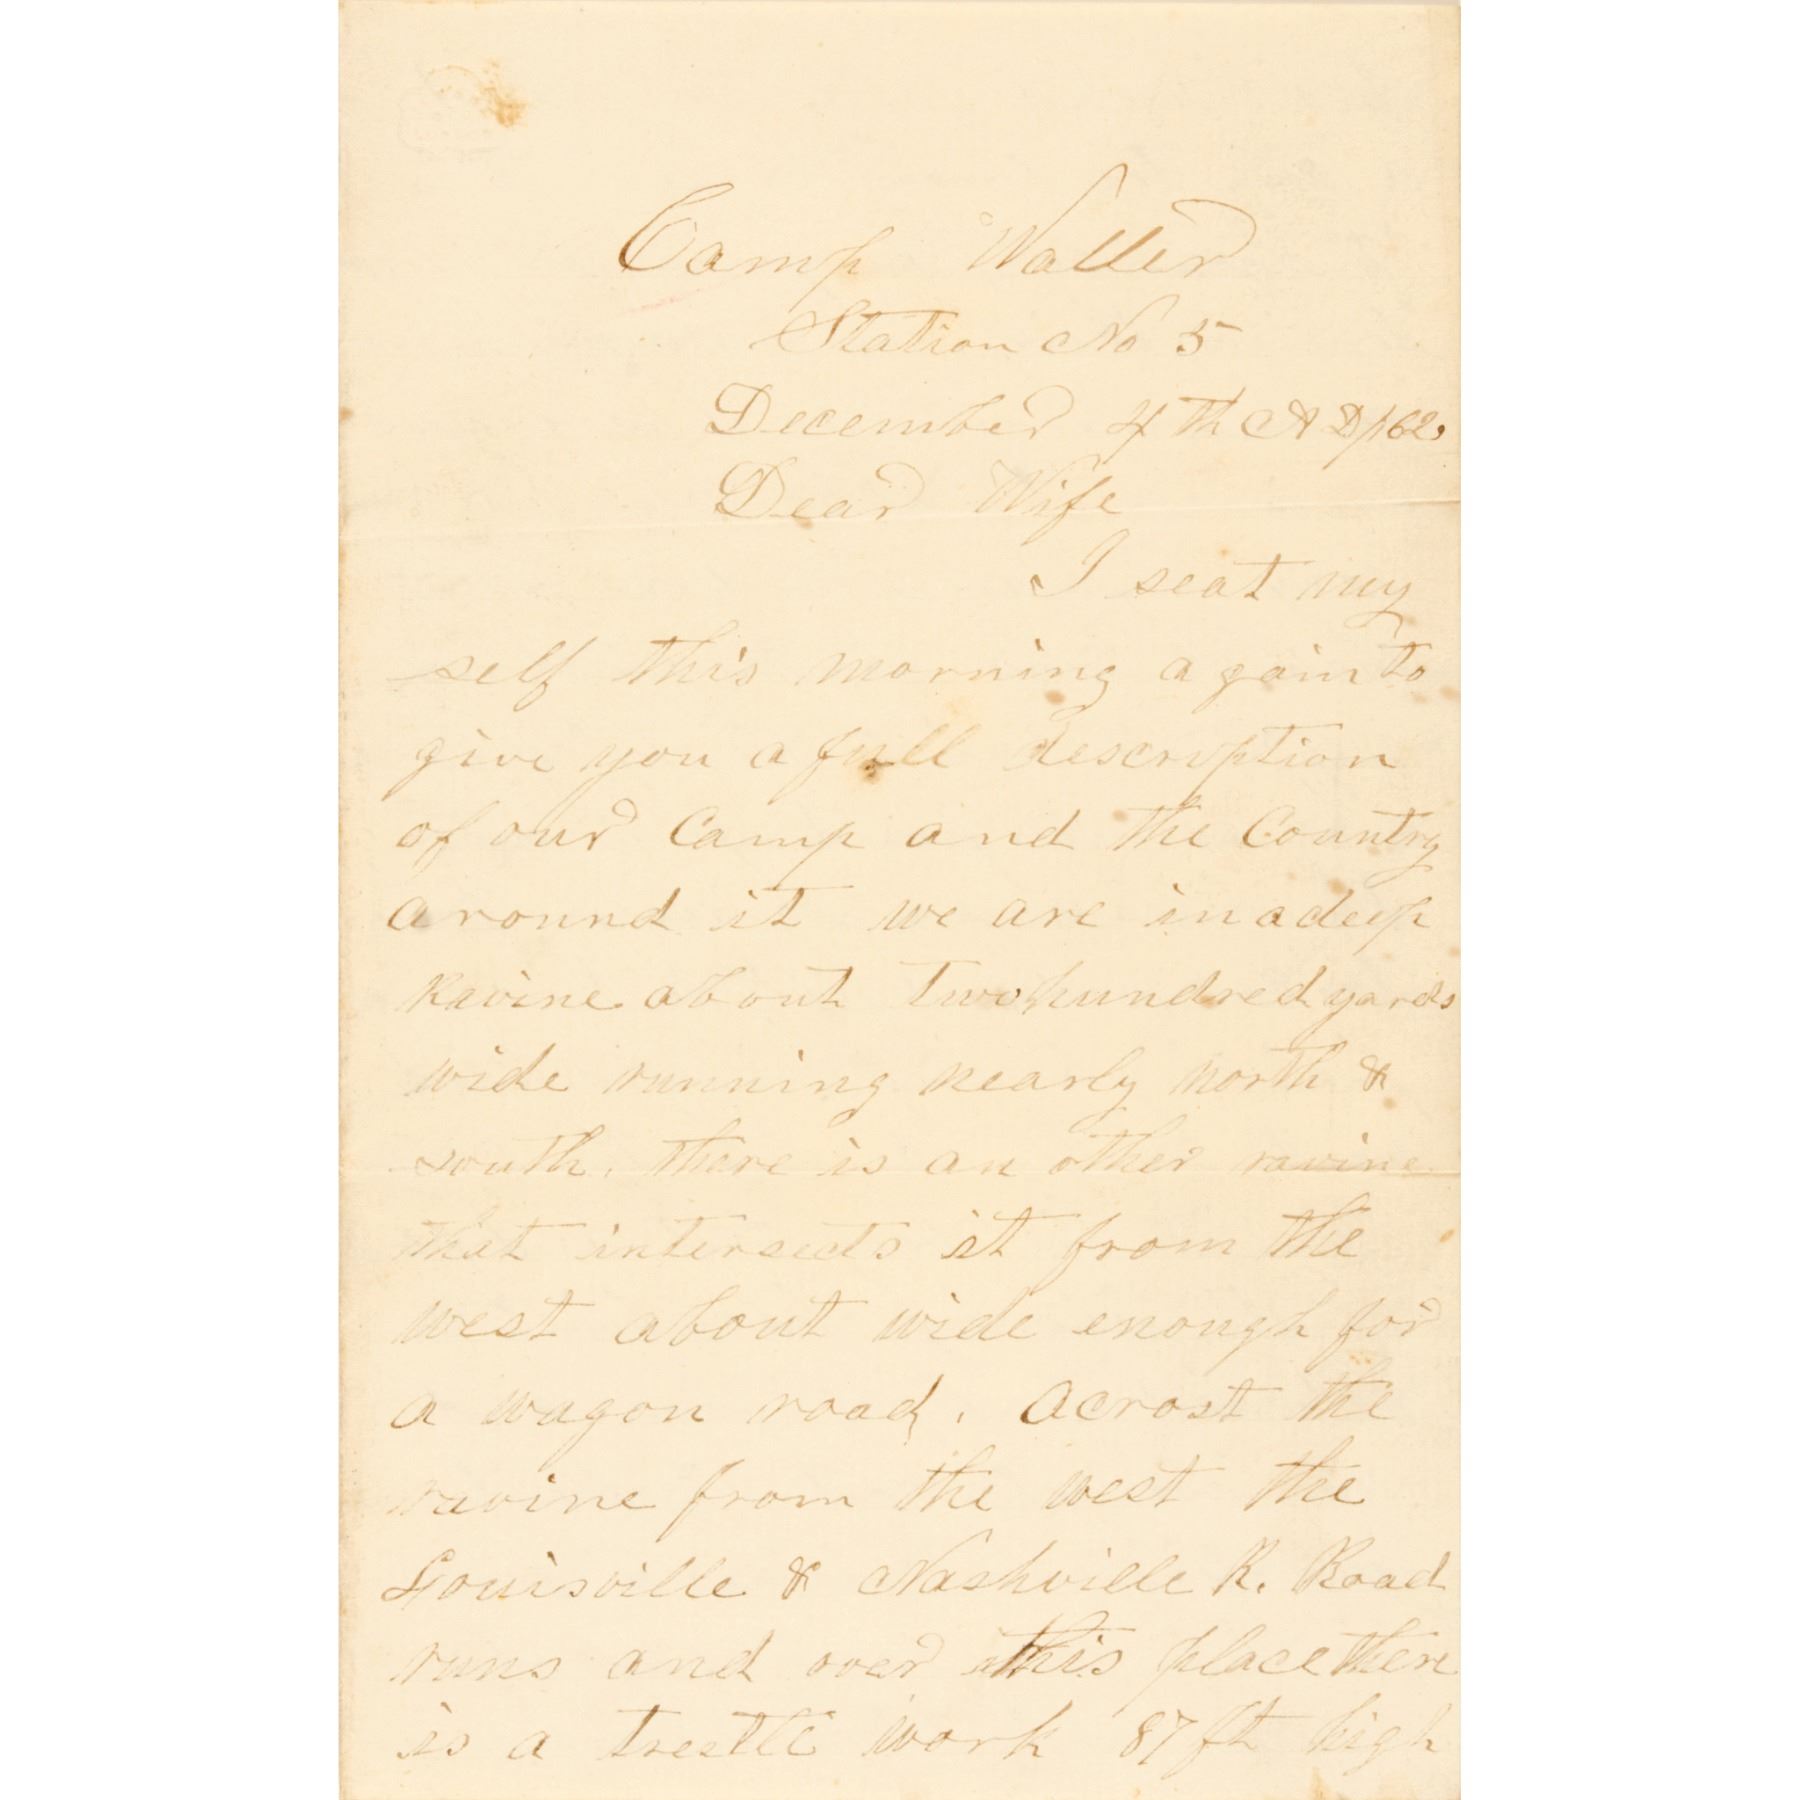 Camp Waller
Station No 5
December 4th AD/62.
Dear Wife
I seat my
self this morning again to
give you a full description
of our Camp and the Country
around it we are in a deep
Ravine about two hundred yards
wide running nearly north &
south. there is an other ravine
that intersects it from the
west about wide enough for
a wagon road. acrost the
ravine from the west the
Louisville & Nashville R. Road
runs and over this place there
is a trestle work 87 ft high